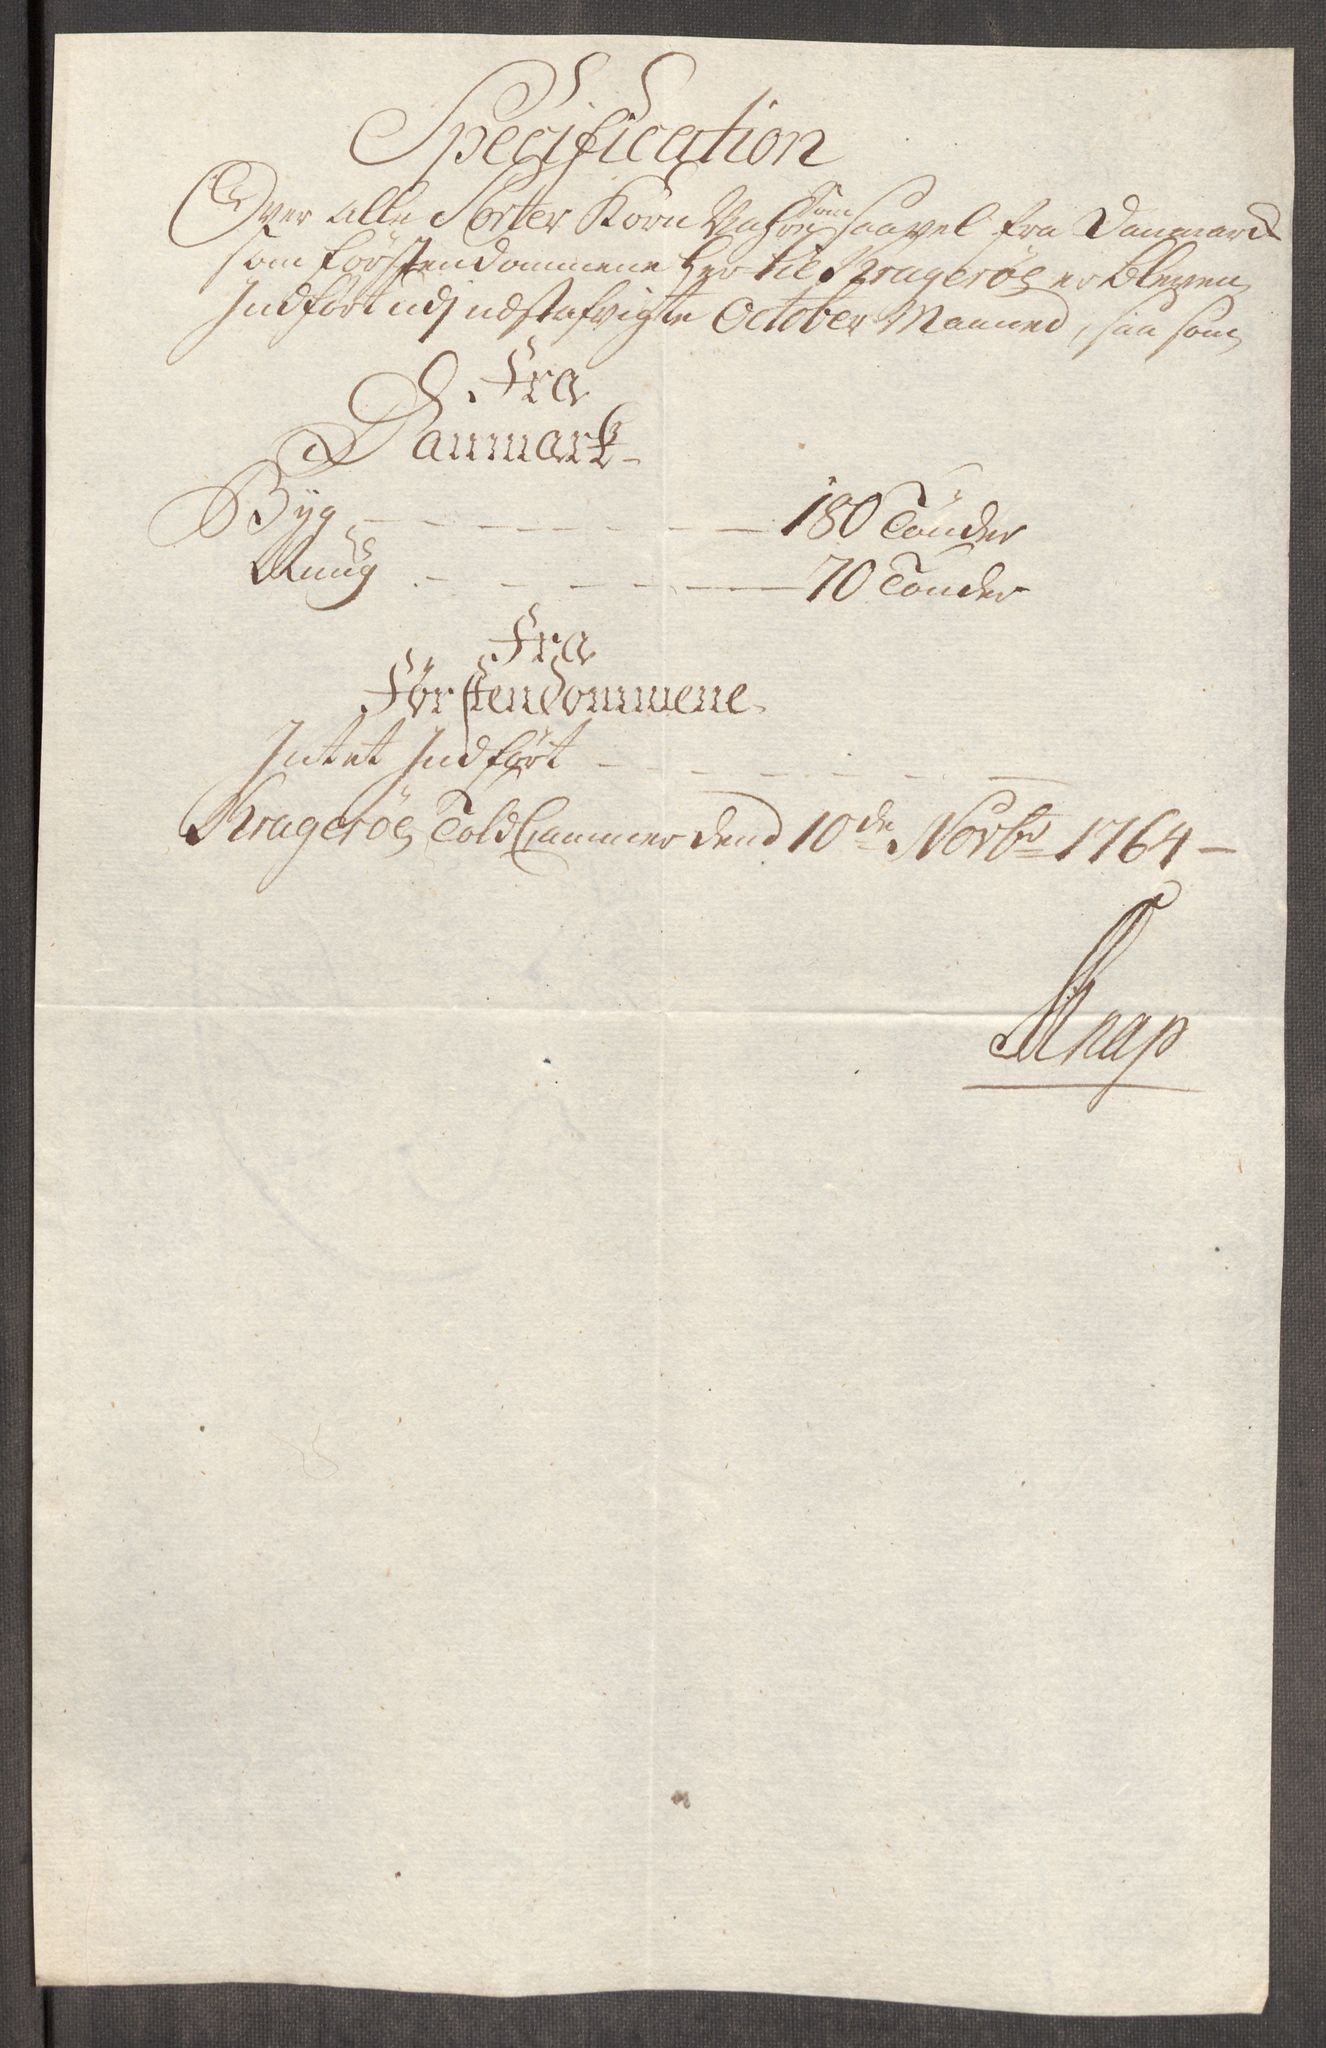 Specification
Over alle Sorter Korn Vahre som saavel fra Danmarck
som Förstendommene her til Kragerøe er bleven
Indført udj udstafvigte October Maaned, saa som
Fra
Danmark
Byg 180 Tönder
Ruug 70 Tönder
Fra
Förstendommene
Intet Indfört
Kragerøe Told Cammer dend 10de Novbr 1764
Knap